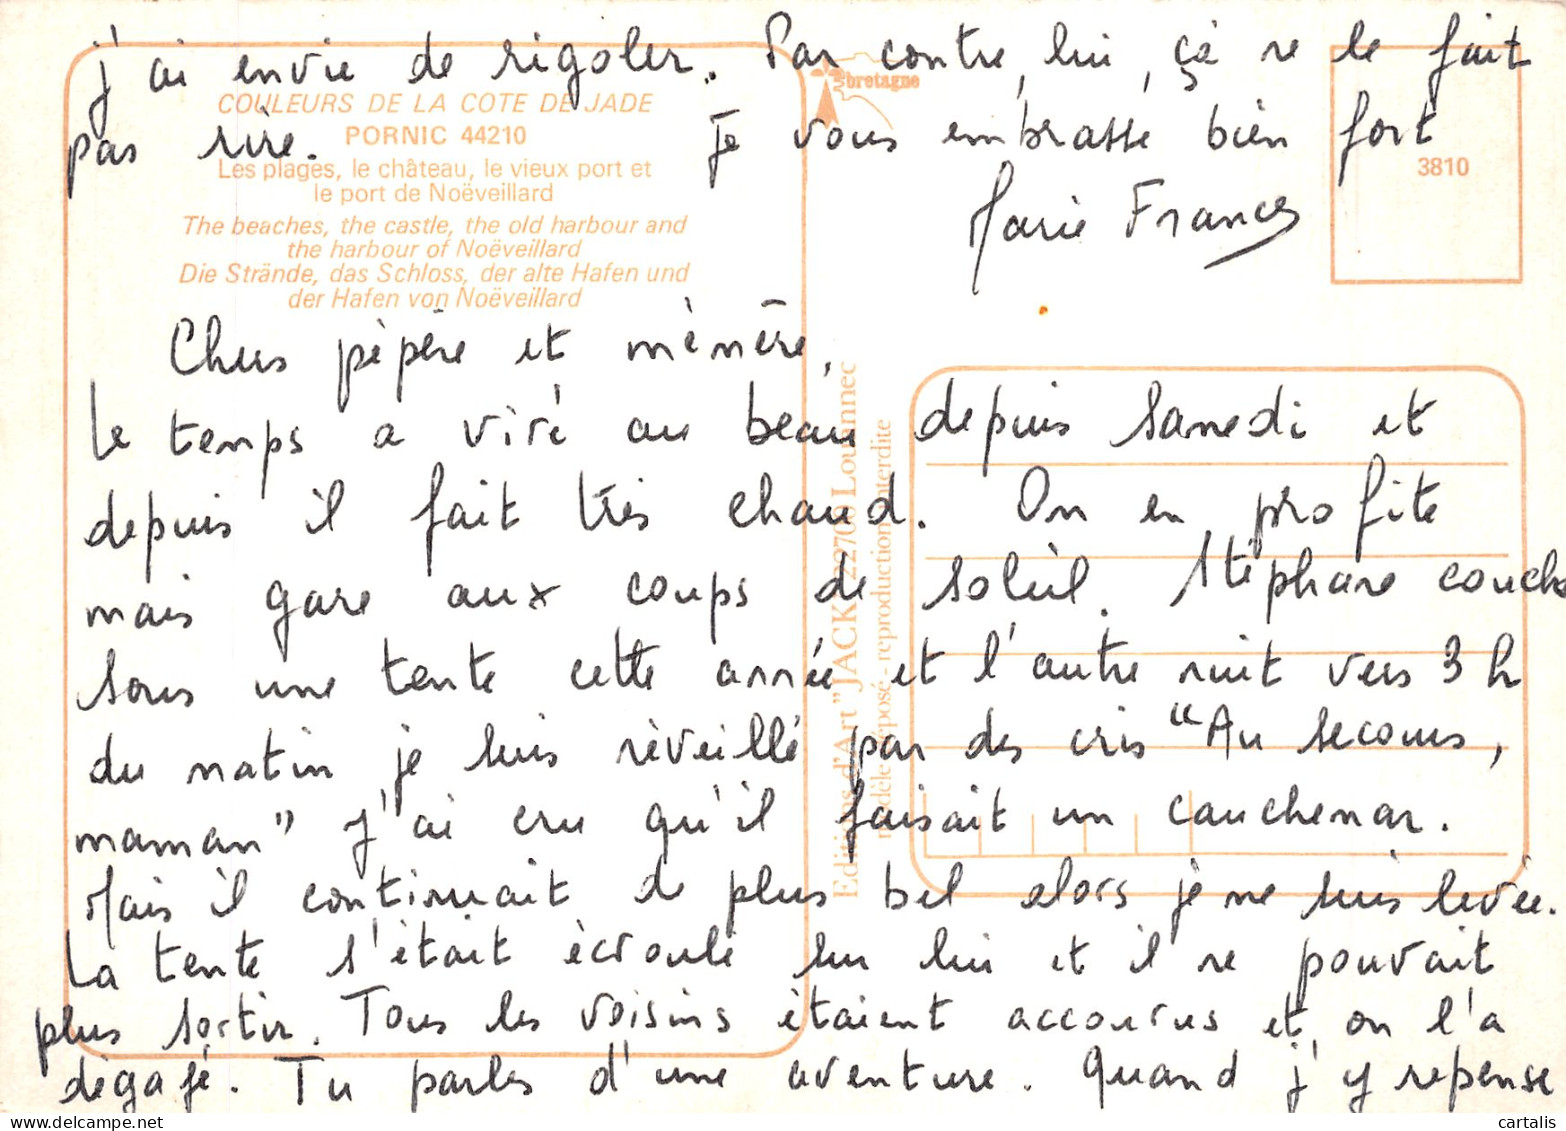 j'ai envie de rigoler. Par contre, lui, çà ne le fait
pas rire. Je vous embrasse bien fort
Marie France
bretagne
3810
COULEURS DE LA COTE DE JADE
PORNIC 44210
Les plages, le château, le vieux port et
le port de Noëveillard
The beaches, the castle, the old harbour and
the harbour of Noëveillard
Die Strände, das Schloss, der alte Hafen und
der Hafen von Noëveillard
Chers pépère et mémère,
Le temps a viré au beau depuis Samedi et
depuis il fait très chaud. On en profite
mais gare aux coups de soleil. Stéphane couche
sous une tente cette année et l'autre nuit vers 3 h
du matin je suis réveillé par des cris "Au secours,
maman" J'ai cru qu'il faisait un cauchemar.
Mais il continuait de plus bel alors je me suis levée.
La tente s'était écroulé sur lui et il ne pouvait
plus sortir. Tous les voisins étaient accourus et on l'a
dégagé. Tu parles d'une aventure. Quand j'y repense
Editions d'Art "JACK" 22700 Louannec
modèle déposé - reproduction interdite
cartalis